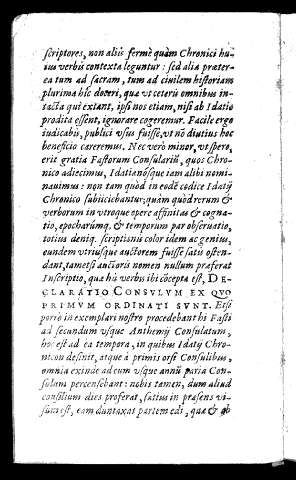 scriptores, non aliis fermè quàm Chronici hu-
ius verbis contexta leguntur: sed aliæ præter-
ea tum ad sacram, tum ad ciuilem historiam
plurima hîc doceri, quæ vt ceteris omnibus in-
tacta qui extant, ipsi nos etiam, nisi ab Idatio
prodita essent, ignorare cogeremur. Facile ergo
iudicabis, publici vsus fuisse, vt nõ diutius hoc
beneficio careremus. Nec verò minor, vt spero,
erit gratia Fastorum Consulariũ, quos Chro-
nico adiecimus, Idatianósque iam alibi nomi-
nauimus: non tam quòd in eodẽ codice Idatij
Chronico subiiciebantur, quàm quòd rerum &
verborum in vtroque opere affinitas & cogna-
tio, epocharúmq, & temporum par obseruatio,
totius deniq. scriptionis color idem ac genius,
eundem vtriusque auctorem fuisse satis osten-
dant, tametsi auctoris nomen nullum præferat
Inscriptio, quæ his verbis ibi cõcepta est, DE-
CLARATIO CONSVLVM EX QVO
PRIMVM ORDINATI SVNT. Etsi
porrò in exemplari nostro procedebant hi Fasti
ad secundum vsque Anthemij Consulatum,
hoc est ad ea tempora, in quibus Idatij Chro-
nicon desinit, atque à primis orsi Consulibus,
omnia exinde ad eum vsque annũ paria Con-
sulum percensebant: nobis tamen, dum aliud
consilium dies proferat, satius in præsens vi-
sum est, eam duntaxat partem edi, quæ & ab